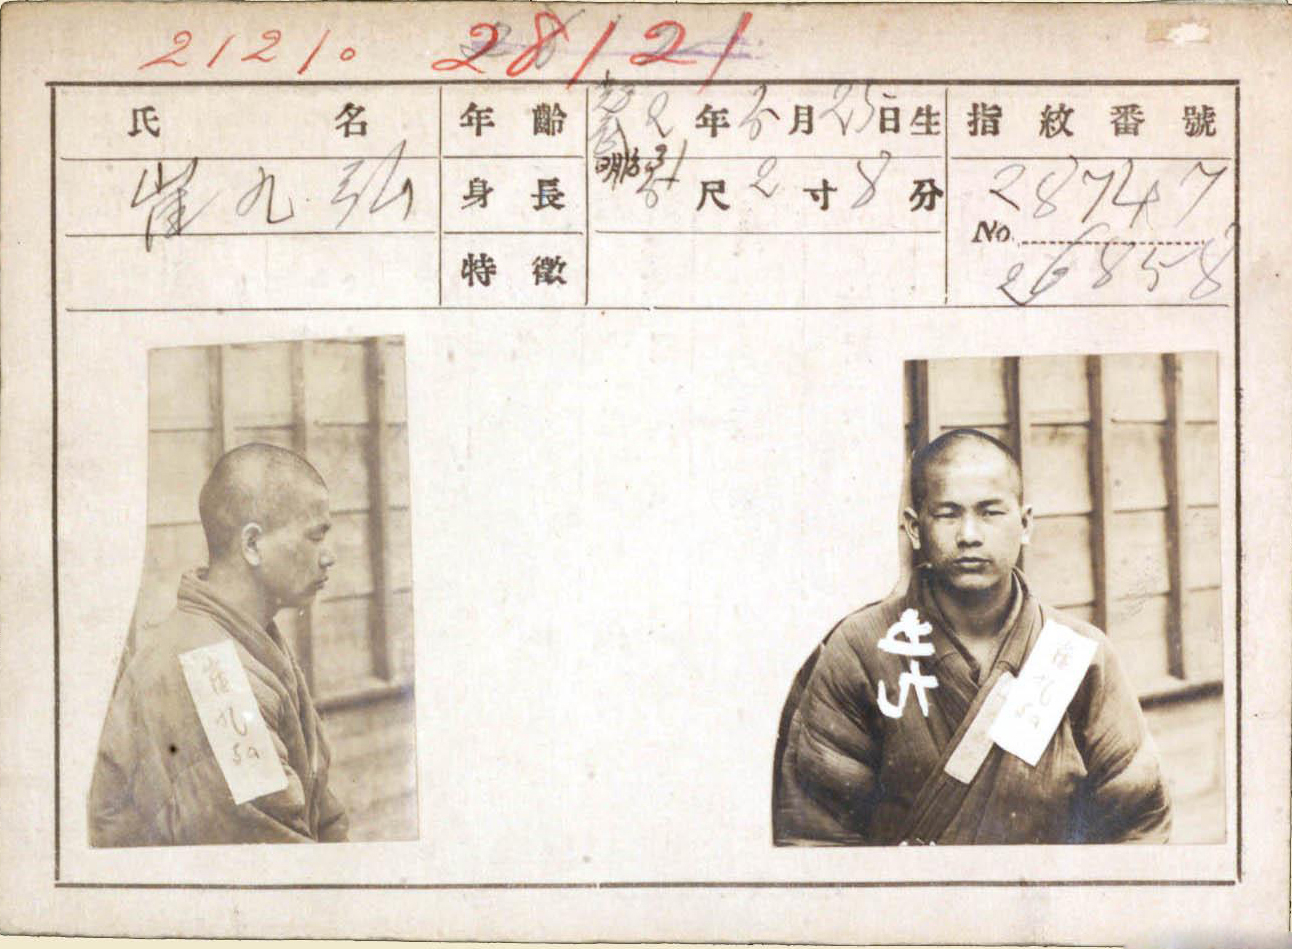 2121. 28121
氏名 年齡 光武2年5月25日生 指紋番號
崔九弘 身長 5尺2寸8分 28747
明治31
特徵 No. 26858
崔九弘
崔九弘